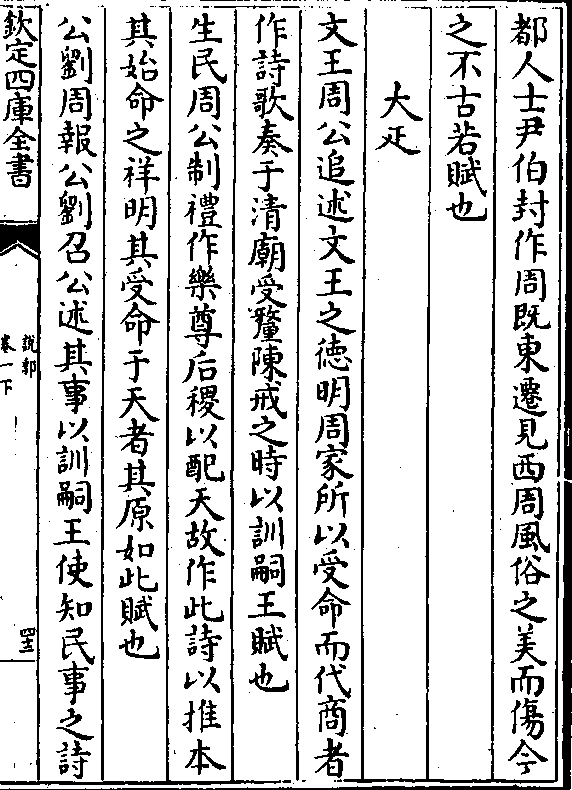 都人士尹伯封作周既東遷見西周風俗之美而傷今
之不古若賦也
大疋
文王周公追述文王之德明周家所以受命而代商者
作詩歌奏于清廟受釐陳戒之時以訓嗣王賦也
生民周公制禮作樂尊后稷以配天故作此詩以推本
其始命之祥明其受命于天者其原如此賦也
公劉周報公劉召公述其事以訓嗣王使知民事之詩
欽定四庫全書
說郛
卷一下